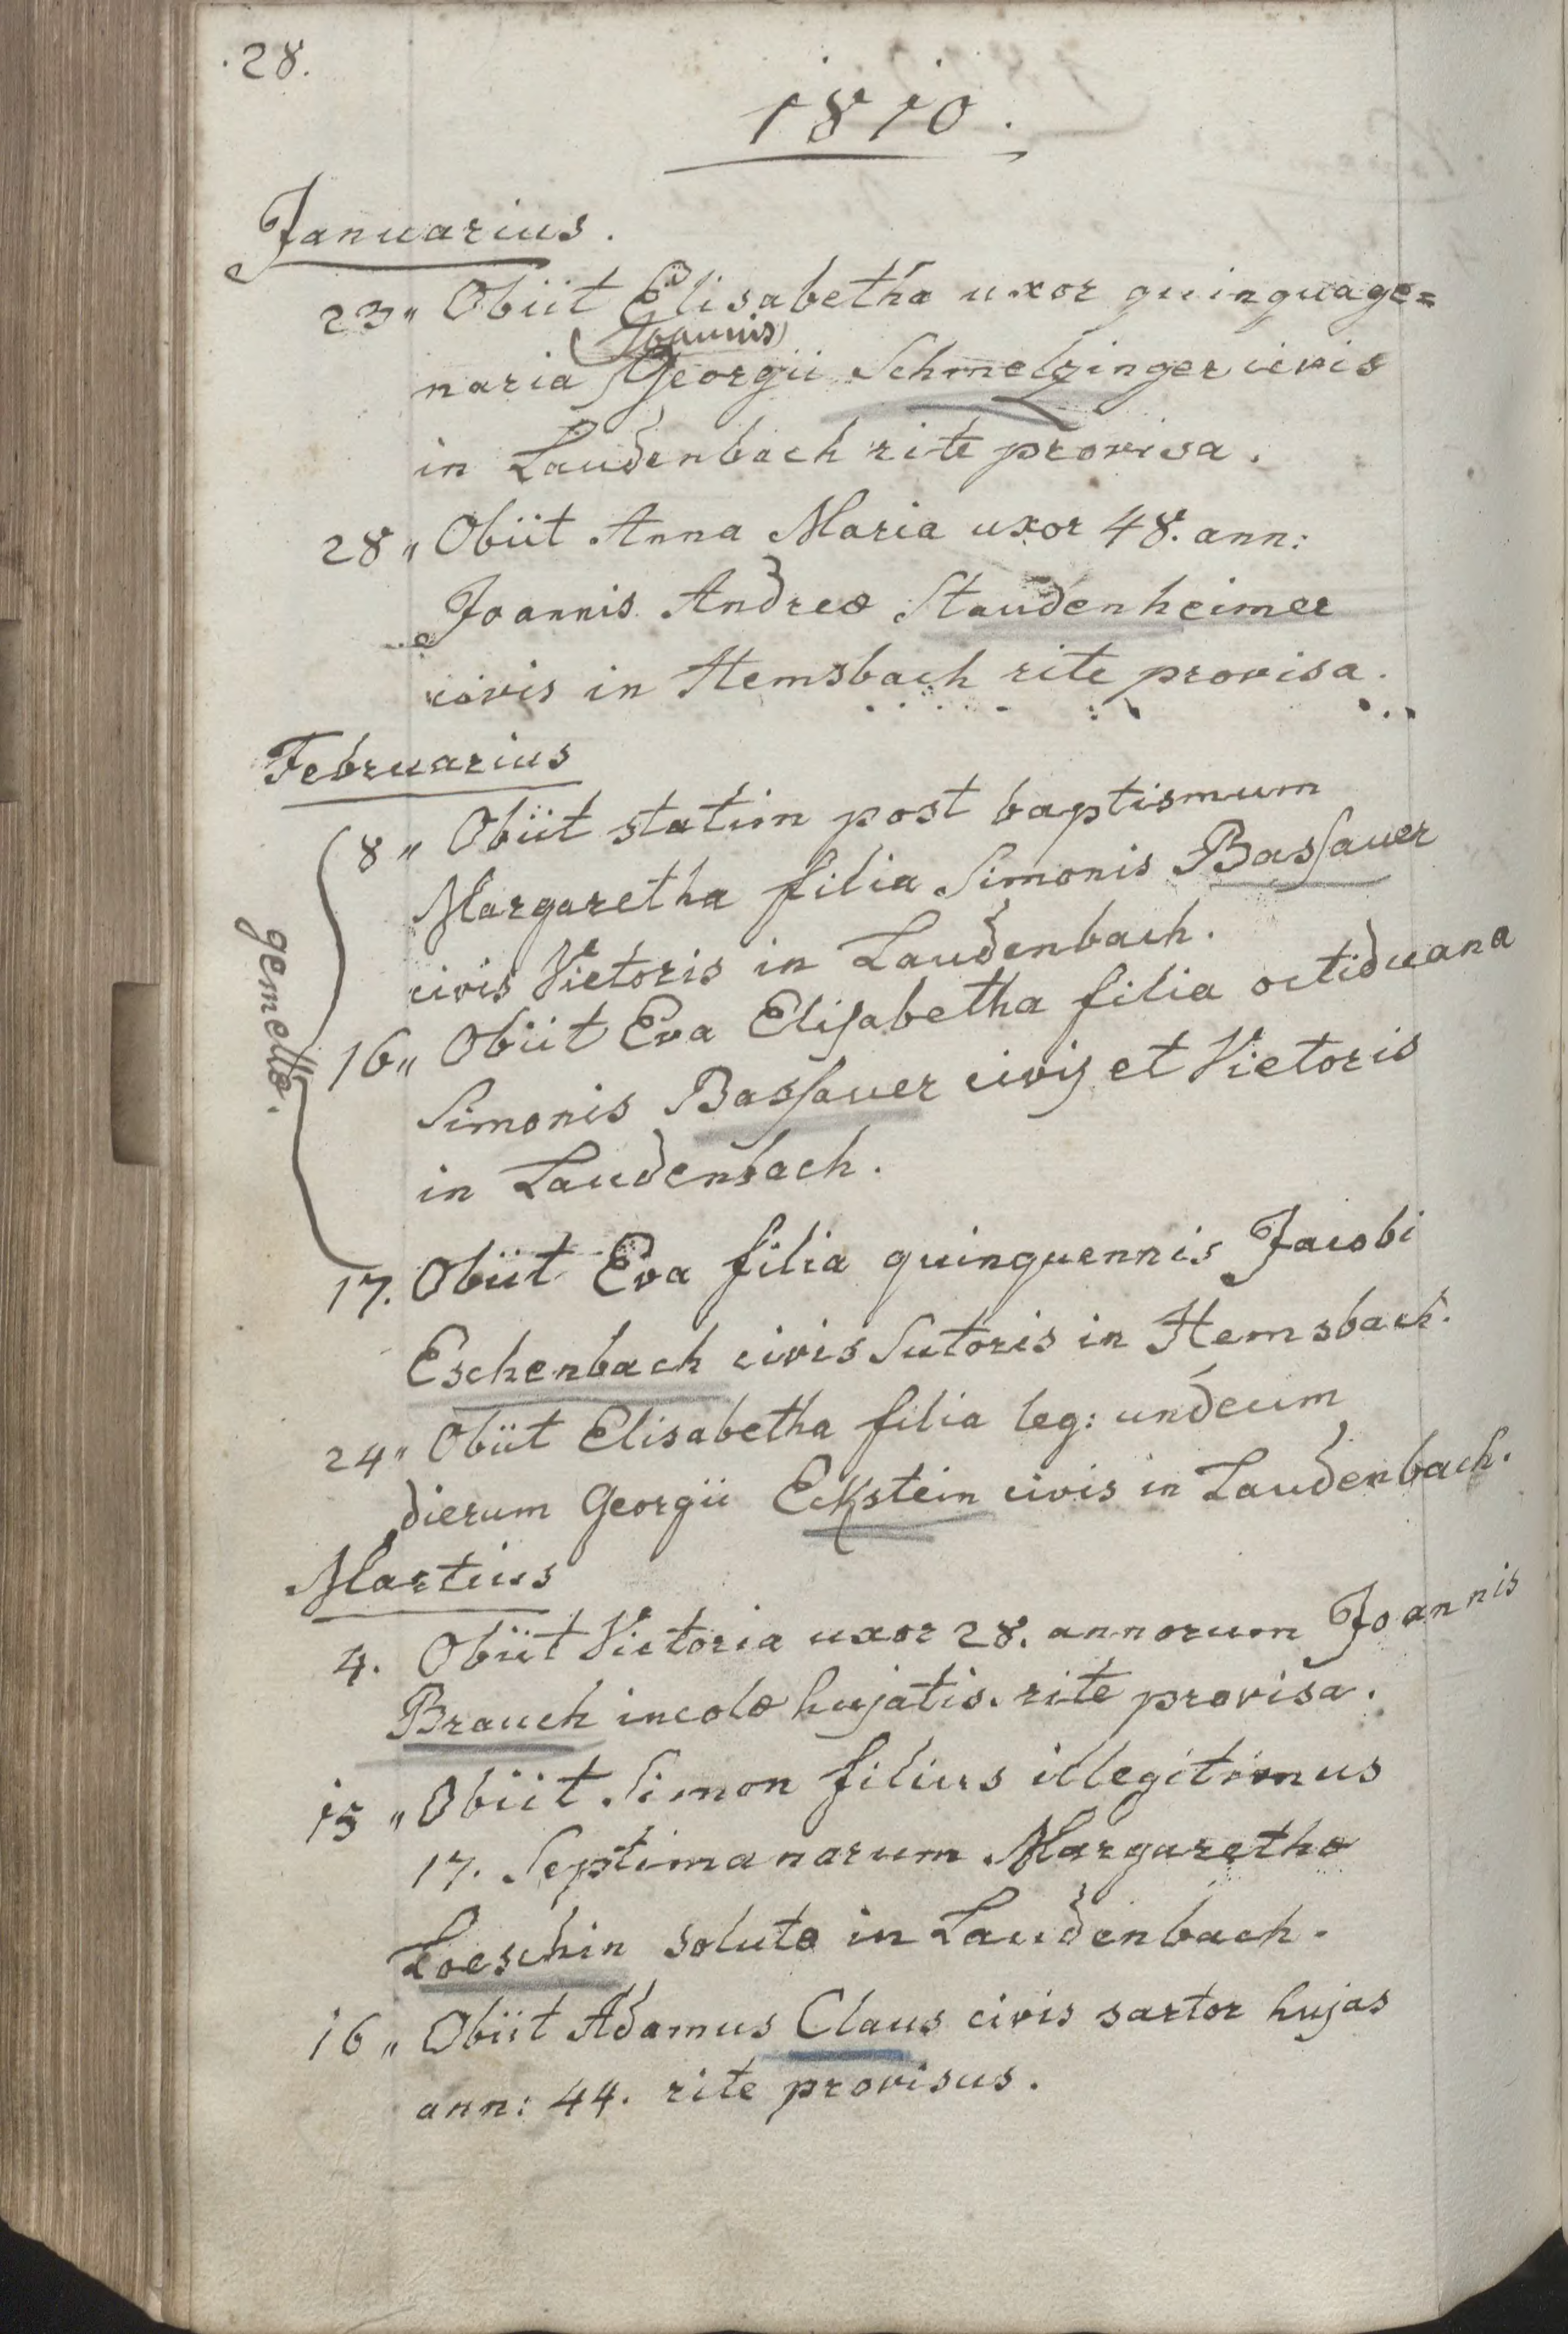 28.
1810.
Januarius.
23" Obiit Elisabetha uxor quinquage=
(Joannis)
naria Georgii Schmelzinger civis
in Laudenbach rite provisa.
28" Obiit Anna Maria uxor 48. ann:
Joannis Andreæ Staudenheimer
civis in Hemsbach rite provisa.
Februarius
8" Obiit statim post baptismum
Margaretha filia Simonis Basſauer
civis Vietoris in Laudenbach.
gemellæ.
16" Obiit Eva Eliſabetha filia octiduana
Simonis Basſauer civis et Vietoris
in Laudenbach.
17. Obiit Eva filia quinquennis Jacobi
Eschenbach civis Sutoris in Hemsbach.
24" Obiit Elisabetha filia leg: undeum
dierum Georgii Eckstein civis in Laudenbach.
Martius
4. Obiit Victoria uxor 28. annorum Joannis
Brauch incolæ hujatis. rite provisa.
15" Obiit Simon filius illegitimus
17. Septimanarum Margarethæ
Loeschin solutæ in Laudenbach.
16" Obiit Adamus Claus civis sartor hujas
ann: 44. rite provisus.